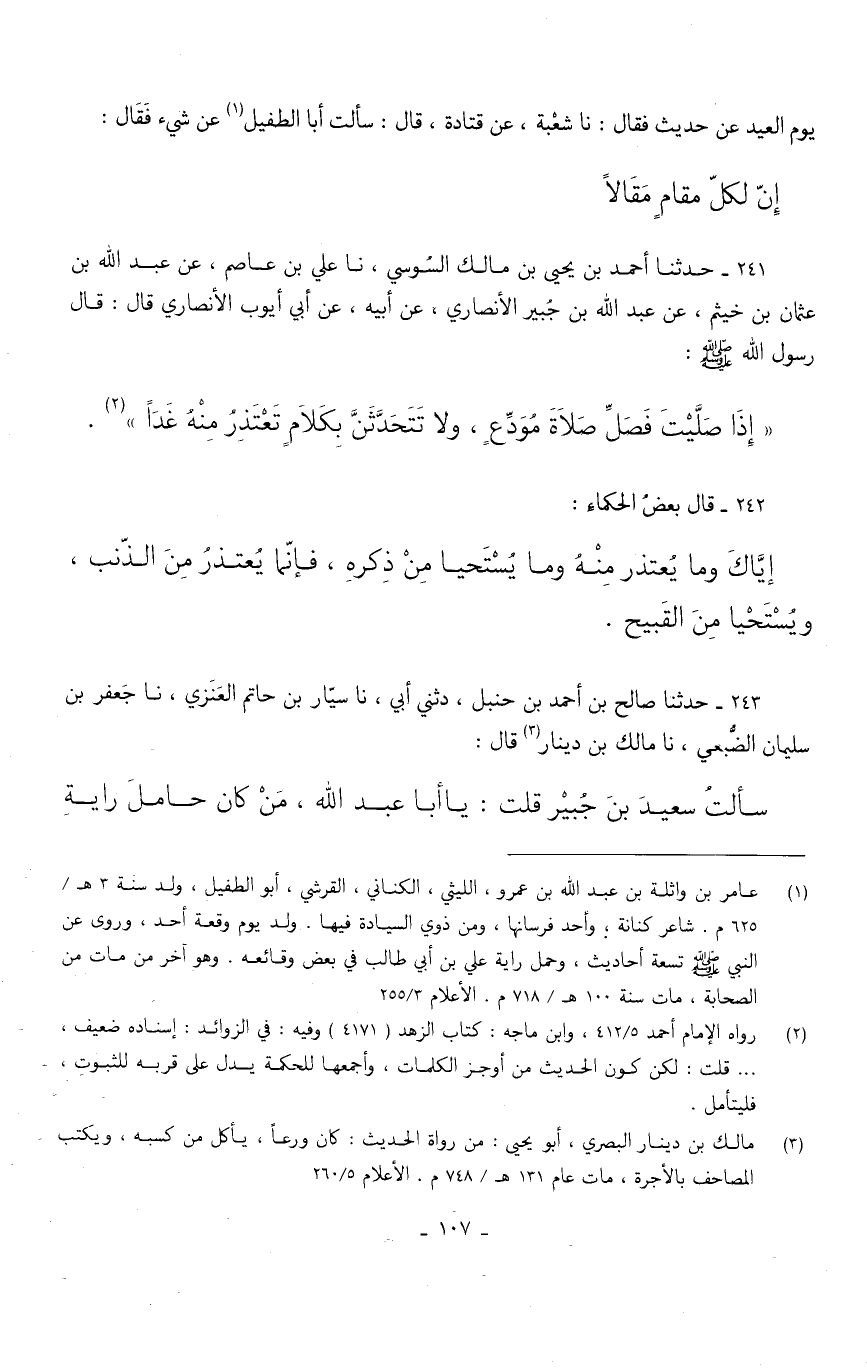 يوم العيد عن حديث فقال : نا شعْبة ، عن قتادة ، قال : سألت أبا الطفيل(١) عن شيء فَقَال :
إِنّ لكلّ مقامٍ مَقَالاً
٢٤١ ـ حدثنا أحمد بن يحيى بن مالك السُوسي ، نا علي بن عاصم ، عن عبد الله بن
عثمان بن خيثم ، عن عبد الله بن جُبير الأنصاري ، عن أبيه ، عن أبي أيوب الأنصاري قال : قال
رسول الله ﷺ :
« إِذَا صَلَّيْتَ فَصَلِّ صَلاَةَ مُوَدِّعٍ ، ولا تَتَحَدَّثَنَّ بِكَلاَمٍ تَعْتَذِرُ مِنْهُ غَدَاً »(٢) .
٢٤٢ ـ قال بعضُ الحكماء :
إِيَّاكَ وما يُعتذر مِنْهُ وما يُسْتَحيا مِنْ ذِكرهِ ، فإنّما يُعتذرُ مِنَ الذّنب ،
ويُسْتَحْيا مِنَ القَبيح .
٢٤٣ ـ حدثنا صالح بن أحمد بن حنبل ، دثني أبي ، نا سيّار بن حاتم العَنَزي ، نا جَعفر بن
سليمان الضُّبعي ، نا مالك بن دينار(٣) قال :
سألتُ سعيدَ بنَ جُبيْر قلت : ياأبا عبد الله ، مَنْ كان حاملَ رايةِ
(١) عامر بن واثلة بن عبد الله بن عمرو ، الليثي ، الكناني ، القرشي ، أبو الطفيل ، ولد سنة ٣ هـ /
٦٢٥ م . شاعر كنانة ، وأحد فرسانها ، ومن ذوي السيادة فيها . ولد يوم وقعة أحد ، وروى عن
النبي ﷺ تسعة أحاديث ، وحمل راية علي بن أبي طالب في بعض وقائعه . وهو آخر من مات من
الصحابة ، مات سنة ١٠٠ هـ / ٧١٨ م . الأعلام ٢٥٥/٣
(٢) رواه الإمام أحمد ٤١٢/٥ ، وابن ماجه : كتاب الزهد ( ٤١٧١ ) وفيه : في الزوائد : إسناده ضعيف ،
... قلت : لكن كون الحديث من أوجز الكلمات ، وأجمعها للحكمة يدل على قربه للثبوت ،
فليتأمل .
(٣) مالك بن دينار البصري ، أبو يحيى : من رواة الحديث : كان ورعاً ، يأكل من كسبه ، ويكتب
المصاحف بالأجرة ، مات عام ١٣١ هـ / ٧٤٨ م . الأعلام ٢٦٠/٥
ـ ١٠٧ ـ